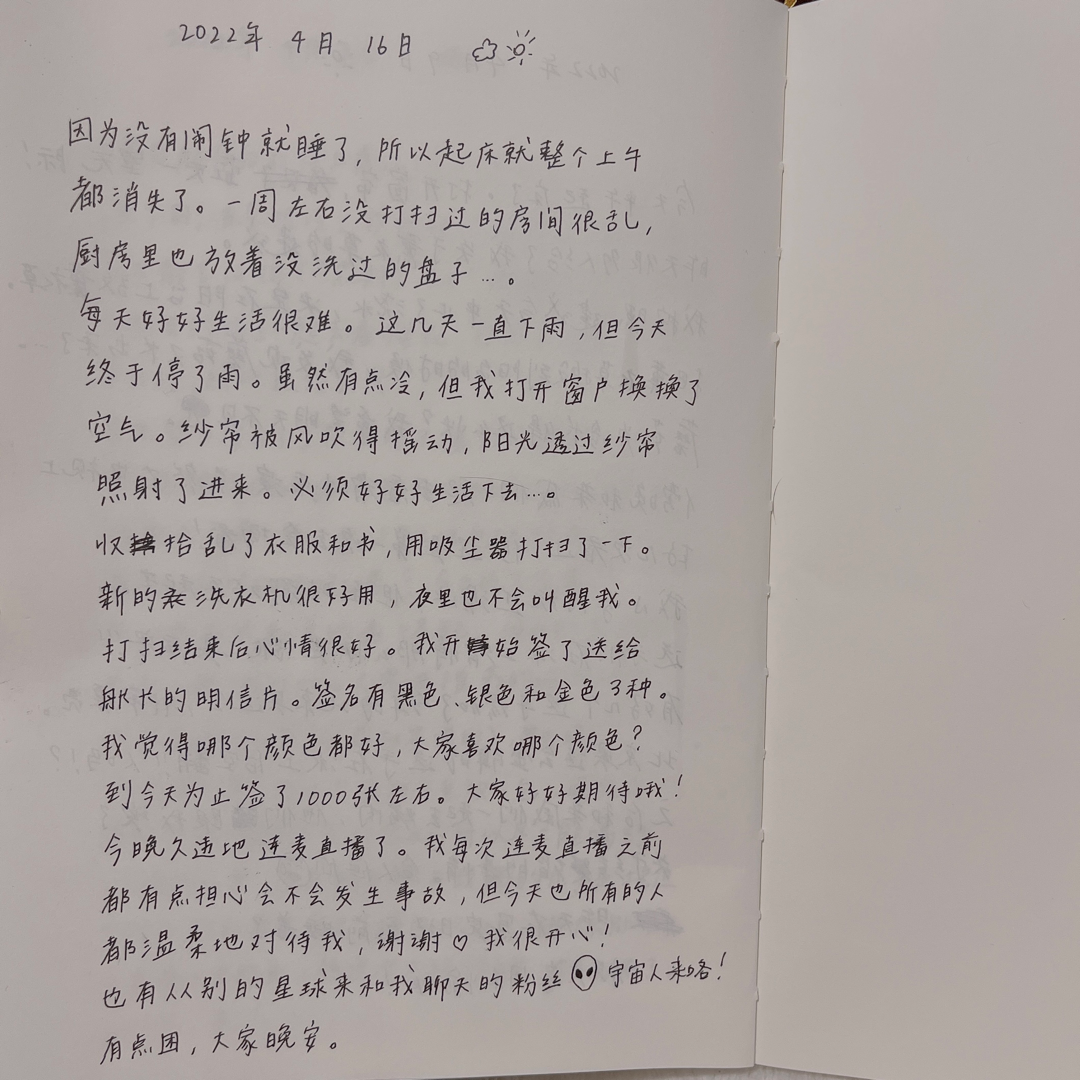 2022年 4月 16日
因为没有闹钟就睡了，所以起床就整个上午
都消失了。一周左右没打扫过的房间很乱，
厨房里也放着没洗过的盘子…。
每天好好生活很难。这几天一直下雨，但今天
终于停了雨。虽然有点冷，但我打开窗户换换了
空气。纱帘被风吹得摇动，阳光透过纱帘
照射了进来。必须好好生活下去…。
收拾乱了衣服和书，用吸尘器打扫了一下。
新的洗衣机很好用，夜里也不会叫醒我。
打扫结束后心情很好。我开始签了送给
船长的明信片。签名有黑色、银色和金色3种。
我觉得哪个颜色都好，大家喜欢哪个颜色？
到今天为止签了1000张左右。大家好好期待哦！
今晚久违地连麦直播了。我每次连麦直播之前
都有点担心会不会发生事故，但今天也所有的人
都温柔地对待我，谢谢♡我很开心！
也有从别的星球来和我聊天的粉丝👽宇宙人来咯！
有点困，大家晚安。